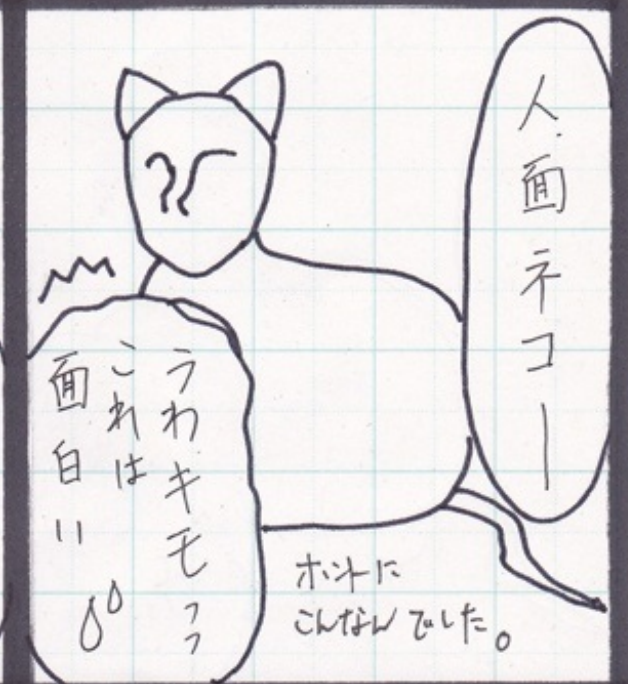 人面ネコー
うわキモッ
これは
面白い
ホントに
こんなんでした。